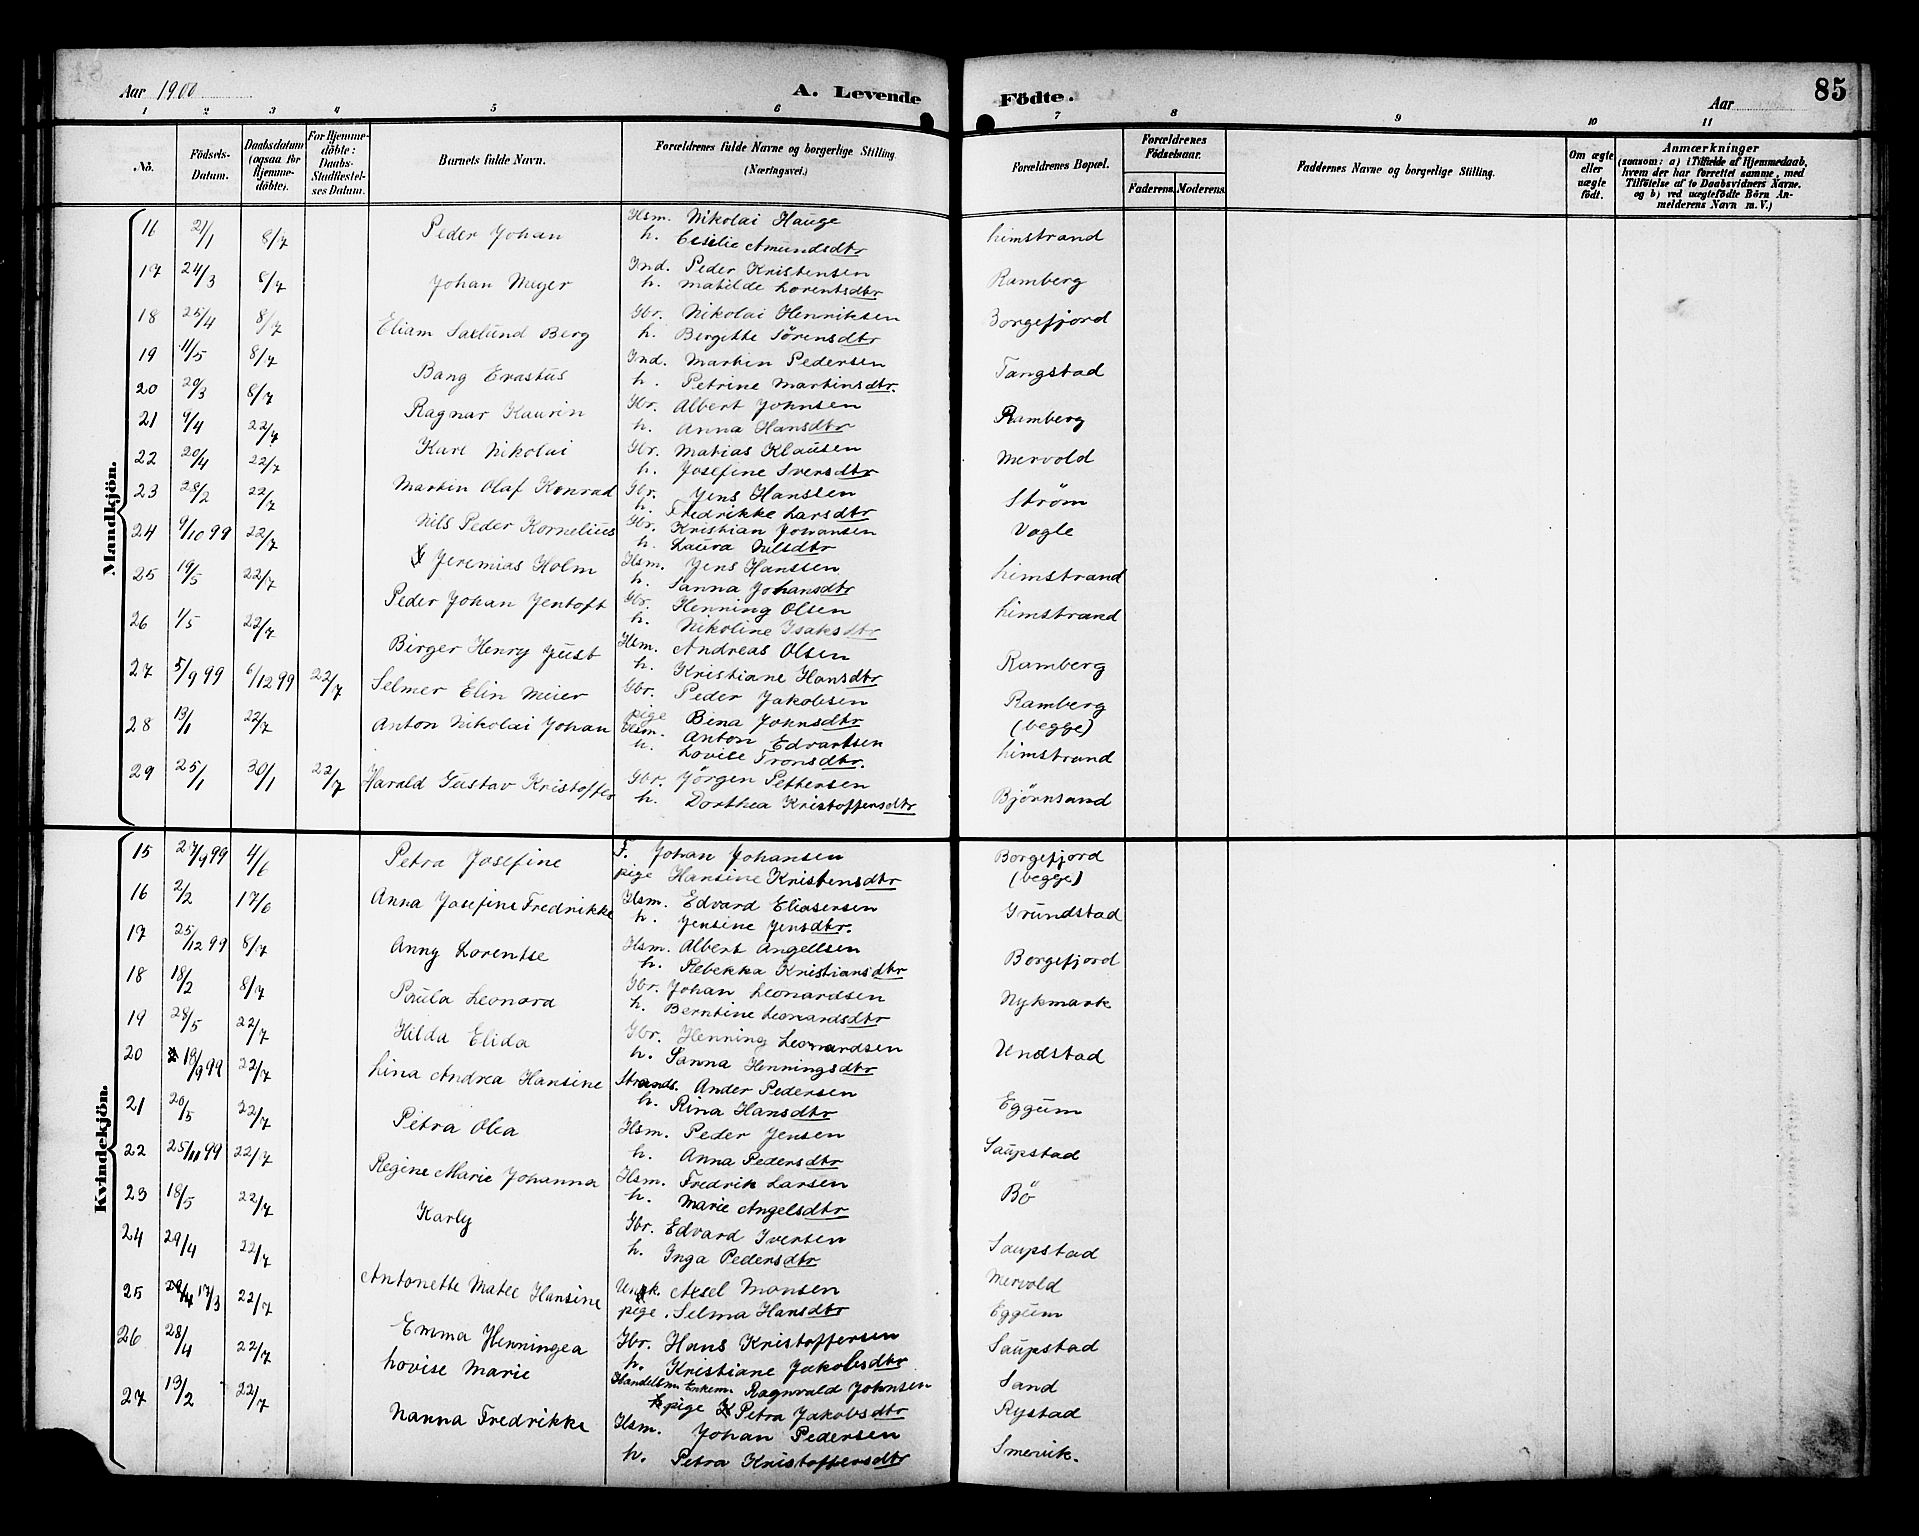 Aar 1900 A. Levende Födte. Aar 85
1 2 3 4 5 6 7 8 9 10 11
No. Födsels-Datum. Daabsdatum (ogsaa for Hjemmedöbte). For Hjemmedöbte: Daabs-Stadfæstelses Datum. Barnets fulde Navn. Forældrenes fulde Navne og borgerlige Stilling. (Næringsvei.) Forældrenes Bopæl. Forældrenes Födselsaar. Faderens. Moderens. Faddernes Navne og borgerlige Stilling. Om ægte eller uægte født. Anmærkninger (saasom: a) i Tilfælde af Hjemmedaab, hvem der har forrettet samme, med Tilföielse af to Daabsvidners Navne, og b) ved uægtefödte Börn Anmelderens Navn m. V.)
Mandkjön.
16 21/1 8/7 Peder Johan Hsm. Nikolai Hauge Limstrand
h. Cecilie Amundsdtr
17 24/3 8/7 Johan Meyer Ind. Peder Kristensen Ramberg
h. Matilde Lorentsdtr
18 25/4 8/7 Eliam Saxlund Berg Gbr. Nikolai Henriksen Borgefjord
h. Bergitte Sörensdtr
19 11/5 8/7 Bang Erastus Ind. Martin Pedersen Tangstad
h. Petrine Martinsdtr.
20 20/3 8/7 Ragnar Kaurin Gbr. Albert Johnsen Ramberg
h. Anna Hansdtr
21 9/4 22/7 Karl Nikolai Gbr. Matias Klausen Mervold
h. Josefine Iversdtr
22 20/4 22/7 Martin Olaf Konrad Gbr. Jens Hanssen Strøm
h. Fredrikke Larsdtr
23 28/2 22/7 Nils Peder Kornelius Gbr. Kristian Johansen Vagle
h. Laura Nilsdtr
24 9/10 99 22/7 Jeremias Holm Hsm. Jens Hanssen Limstrand
h. Sanna Johansdtr
25 19/5 22/7 Peder Johan Jentoft Gbr. Henning Olsen Limstrand
h. Nikoline Isaksdtr
26 1/5 22/7 Birger Henry Just Hsm. Andreas Olsen Ramberg
h. Kristiane Hansdtr
27 5/9 99 6/12 99 22/7 Selmer Elin Meier Gbr. Peder Jakobsen Ramberg
pige Bina Johnsdtr (begge)
28 13/1 22/7 Anton Nikolai Johan Hsm. Anton Edvartsen Limstrand
h. Lovise Tronsdtr.
29 25/1 30/1 22/7 Harald Gustav Kristoffer Gbr. Jörgen Pettersen Bjørnsand
h. Dorthea Kristoffersdtr
Kvindekjön.
15 27/9 99 4/6 Petra Josefine F. Johan Johansen Borgefjord
pige Hansine Kristensdtr (begge)
16 2/2 17/6 Anna Josefine Fredrikke Hsm. Edvard Eliasersen Grundstad
h. Jensine Jensdtr.
17 25/12 99 8/7 Anny Lorentse Hsm. Albert Angellsen Borgefjord
h. Rebekka Kristiansdtr
18 18/2 8/7 Paula Leonora Gbr. Johan Leonardsen Nykmark
h. Berntine Leonardsdtr
19 28/5 22/7 Hilda Elida Gbr. Henning Leonardsen Undstad
h. Sanna Henningsdtr
20 19/9 99 22/7 Lina Andrea Hansine Strands. Ander Pedersen Eggum
h. Rina Hansdtr
21 20/5 22/7 Petra Olea Hsm. Peder Jensen Saupstad
h. Anna Pedersdtr
22 25/11 99 22/7 Regine Marie Johanna Hsm. Fredrik Larsen Bö
h. Marie Angelsdtr
23 18/5 22/7 Karly Gbr. Edvard Iversen Saupstad
h. Inga Pedersdtr
24 29/4 22/7 Antonette Matee Hansine Ungk. Axel Monsen Mervold
pige. Selma Hansdtr Eggum
25 17/3 22/7 Emma Henningea Gbr. Hans Kristoffersen Saupstad
h. Kristiane Jakobsdtr
26 28/4 22/7 Lovise Marie Handelsm. Enkem. Ragnvald Johnsen Sand
pige Petra Jakobsdtr Rystad
27 13/2 22/7 Nanna Fredrikke Hsm. Johan Pedersen Smervik.
h. Petra Kristoffersdtr